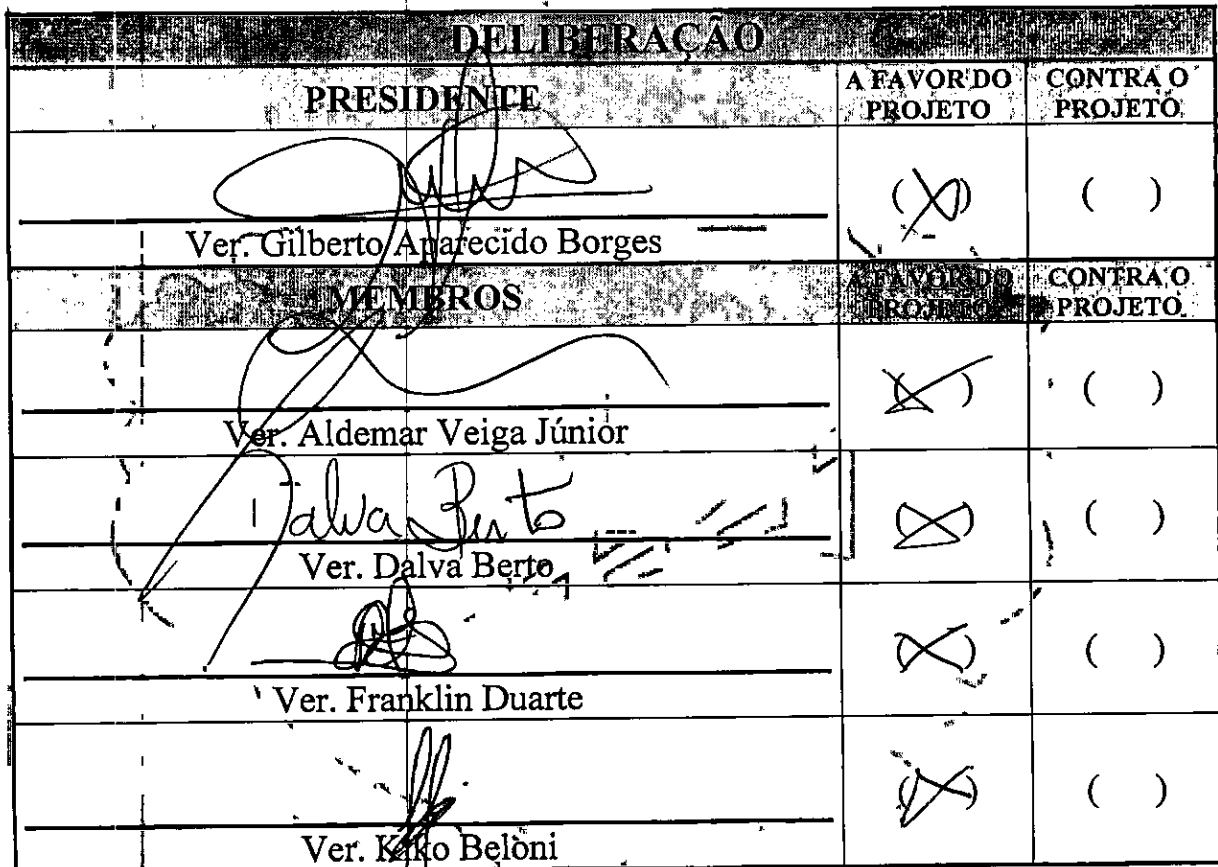 DELIBERAÇÃO
PRESIDENTE
A FAVOR DO PROJETO
CONTRA O PROJETO
(X) ( )
Ver. Gilberto Aparecido Borges
MEMBROS
A FAVOR DO PROJETO
CONTRA O PROJETO
(X) ( )
Ver. Aldemar Veiga Júnior
Dalva Berto
(X) ( )
Ver. Dalva Berto
(X) ( )
Ver. Franklin Duarte
(X) ( )
Ver. Kiko Beloni